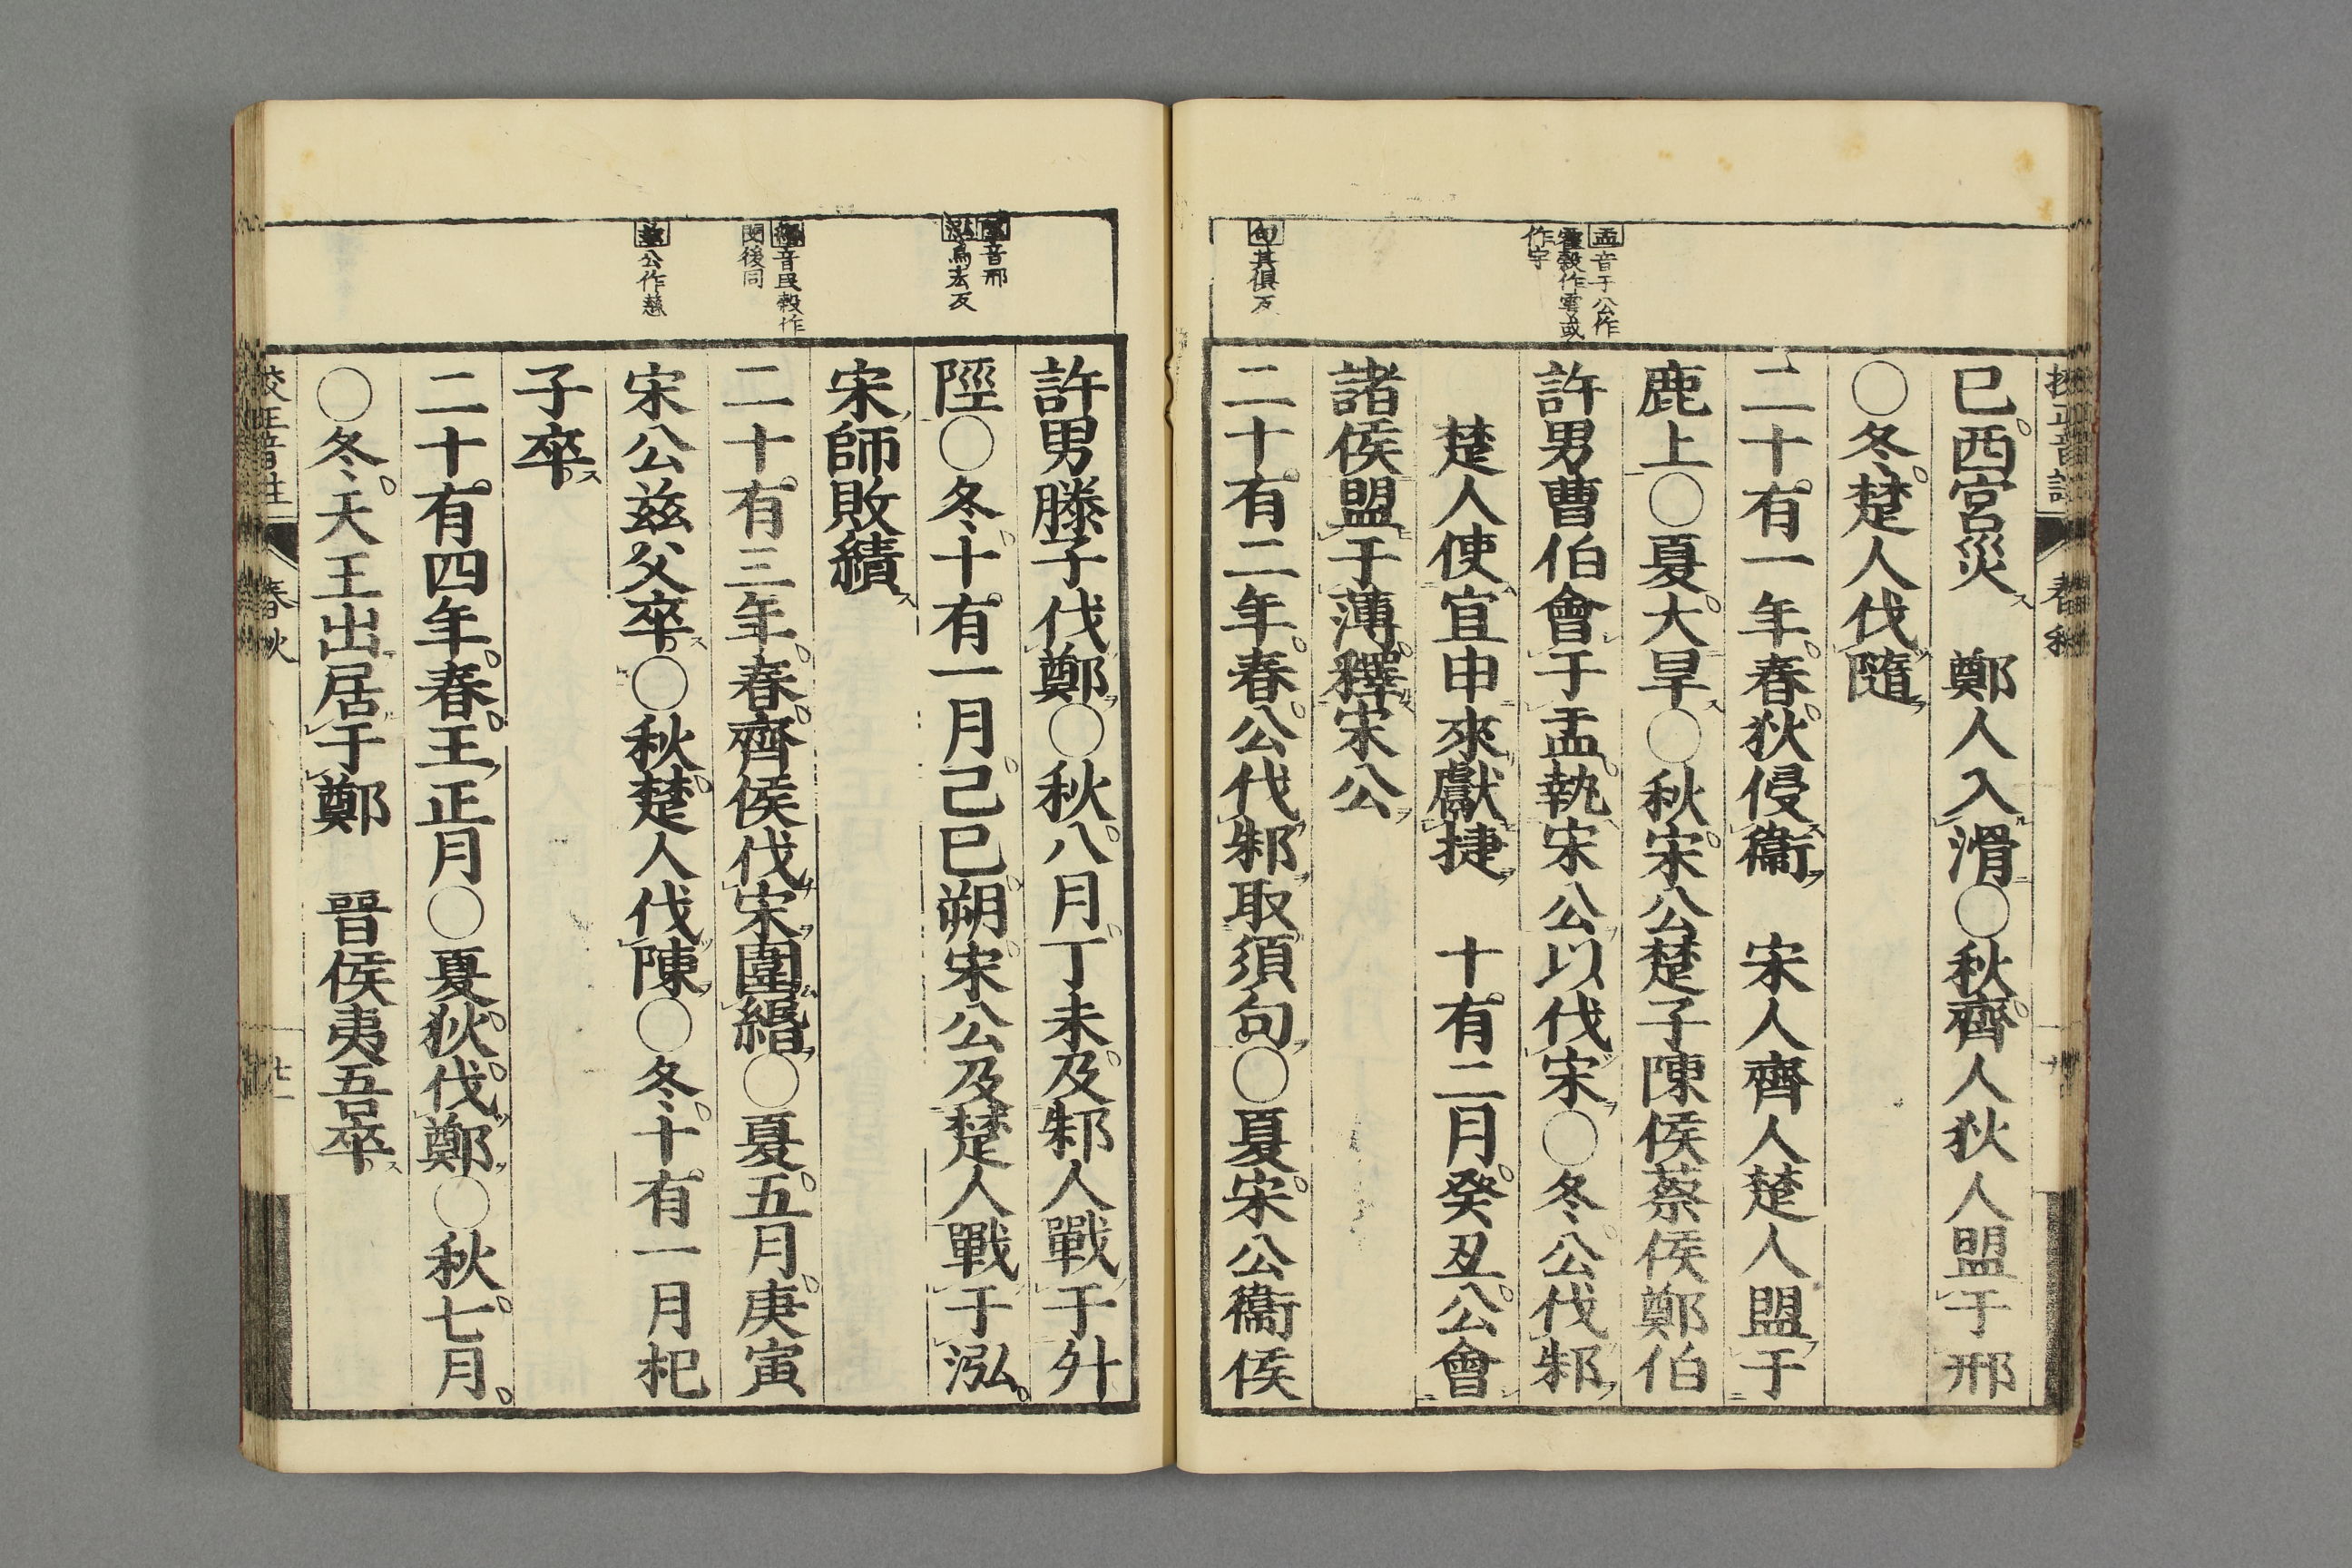 巳西宮災　鄭人入滑○秋齊人狄人盟于邢
○冬楚人伐隨
二十有一年春狄侵衞　宋人齊人楚人盟于
鹿上○夏大旱○秋宋公楚子陳侯蔡侯鄭伯
許男曹伯會于盂執宋公以伐宋○冬公伐邾
楚人使宜申來獻捷　十有二月癸丑公會
諸侯盟于薄釋宋公
二十有二年春公伐邾取須句○夏宋公衞侯
盂音于公作
霍穀作雩或
作宇
句其俱反
許男滕子伐鄭○秋八月丁未及邾人戰于升
陘○冬十有一月己巳朔宋公及楚人戰于泓
宋師敗績
二十有三年春齊侯伐宋圍緡○夏五月庚寅
宋公兹父卒○秋楚人伐陳○冬十有一月杞
子卒
二十有四年春王正月○夏狄伐鄭○秋七月
○冬天王出居于鄭　晉侯夷吾卒
音邢
泓烏宏反
緡音民穀作
閔後同
兹公作慈
校正音註
春秋